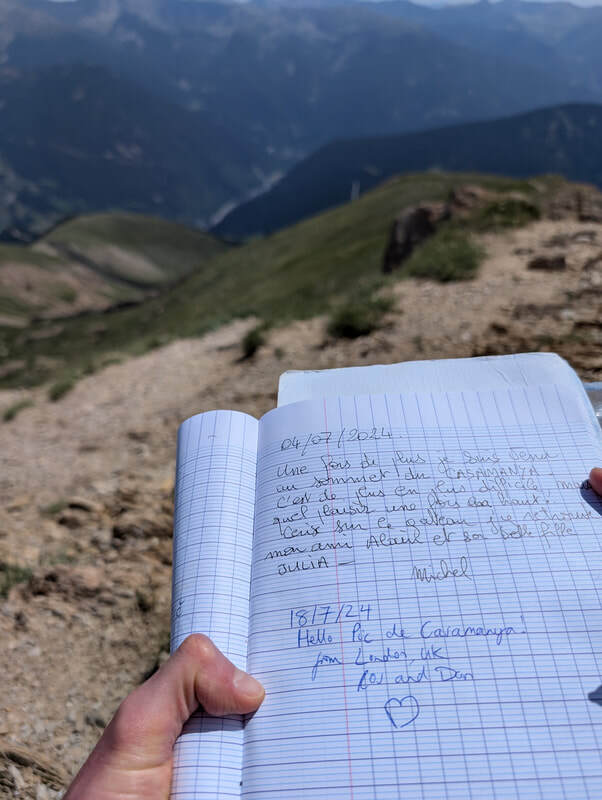 04/07/2024.
Une fois de plus je suis venu
au sommet du CASAMANYA
c'est de plus en plus difficile mais
quel plaisir une fois en haut.
Cerise sur le gateau j'ai retrouvé
mon ami Alain et sa belle fille
JULIA -
Michel
18/7/24
Hello Pic de Casamanya!
from London, UK
and Dan